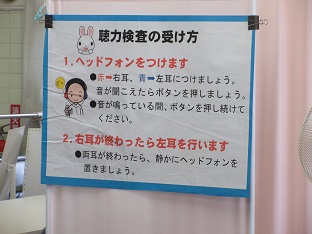 聴力検査の受け方
1. ヘッドフォンをつけます
●赤➡右耳、青➡左耳につけましょう。
音が聞こえたらボタンを押しましょう。
●音が鳴っている間、ボタンを押し続けて
ください。
2. 右耳が終わったら左耳を行います
●両耳が終わったら、静かにヘッドフォンを
置きましょう。